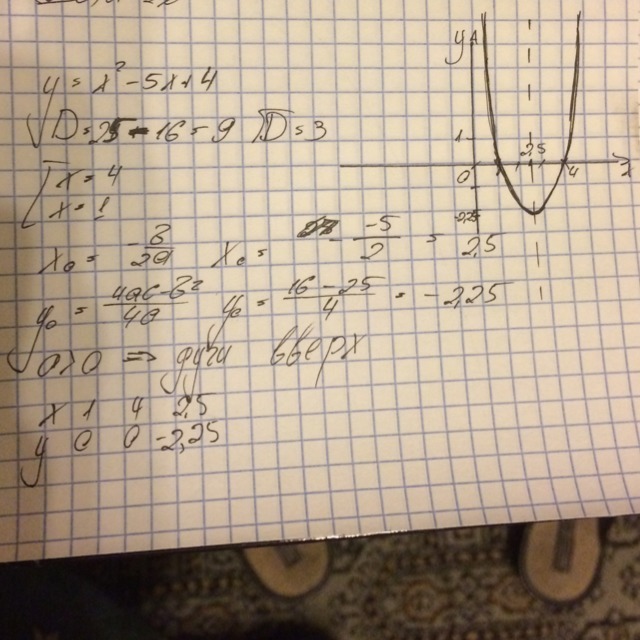 y = x² - 5x + 4
D = 25 - 16 = 9 √D = 3
x = 4
x = 1
x₀ = -в/2a x₀ = - -5/2 = 2,5
y₀ = 4ac-в²/4a y₀ = 16-25/4 = -2,25
a>0 ⇒ дуги вверх
x 1 4 2,5
y 0 0 -2,25
y
1
2,5
0
4
-2,25